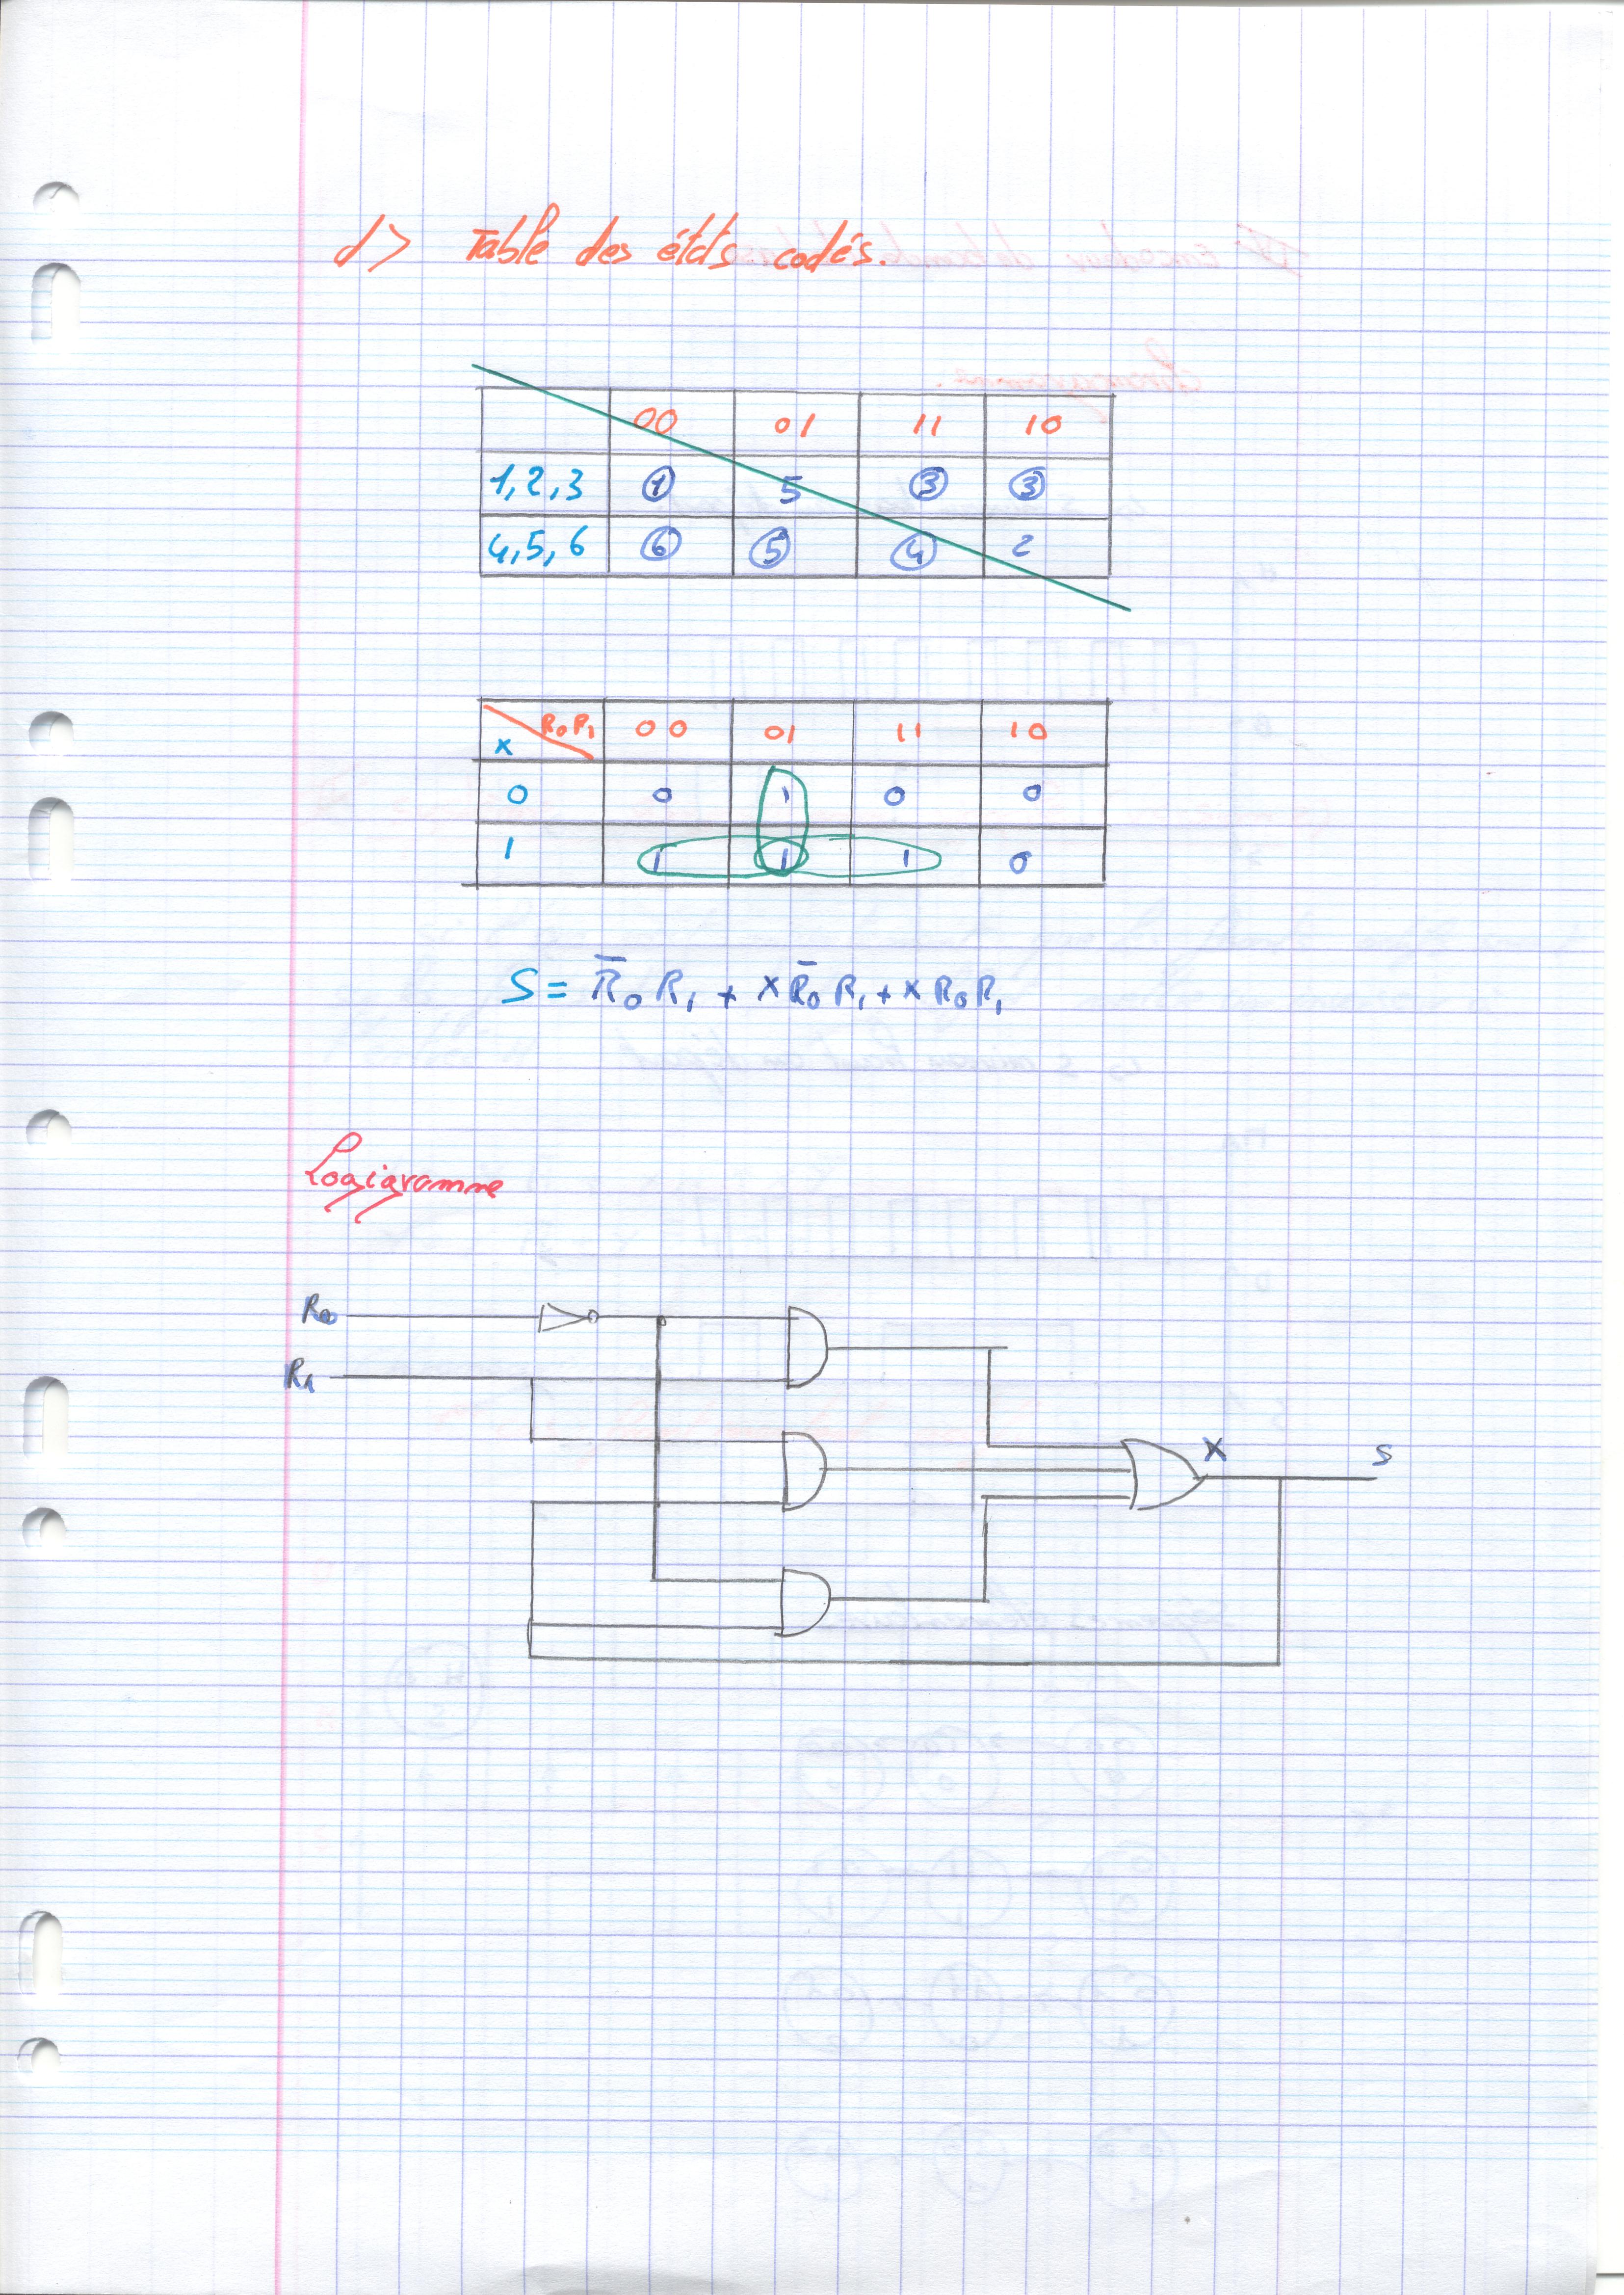 d> Table des états codés.
00 01 11 10
1,2,3 ① 5 ③ ③
4,5,6 ⑥ ⑤ ④ 2
R₀R₁
x 00 01 11 10
0 0 1 0 0
1 1 1 1 0
S = R̄₀R₁ + xR̄₀R₁ + xR₀R₁
Logigramme
R₀
R₁
X S